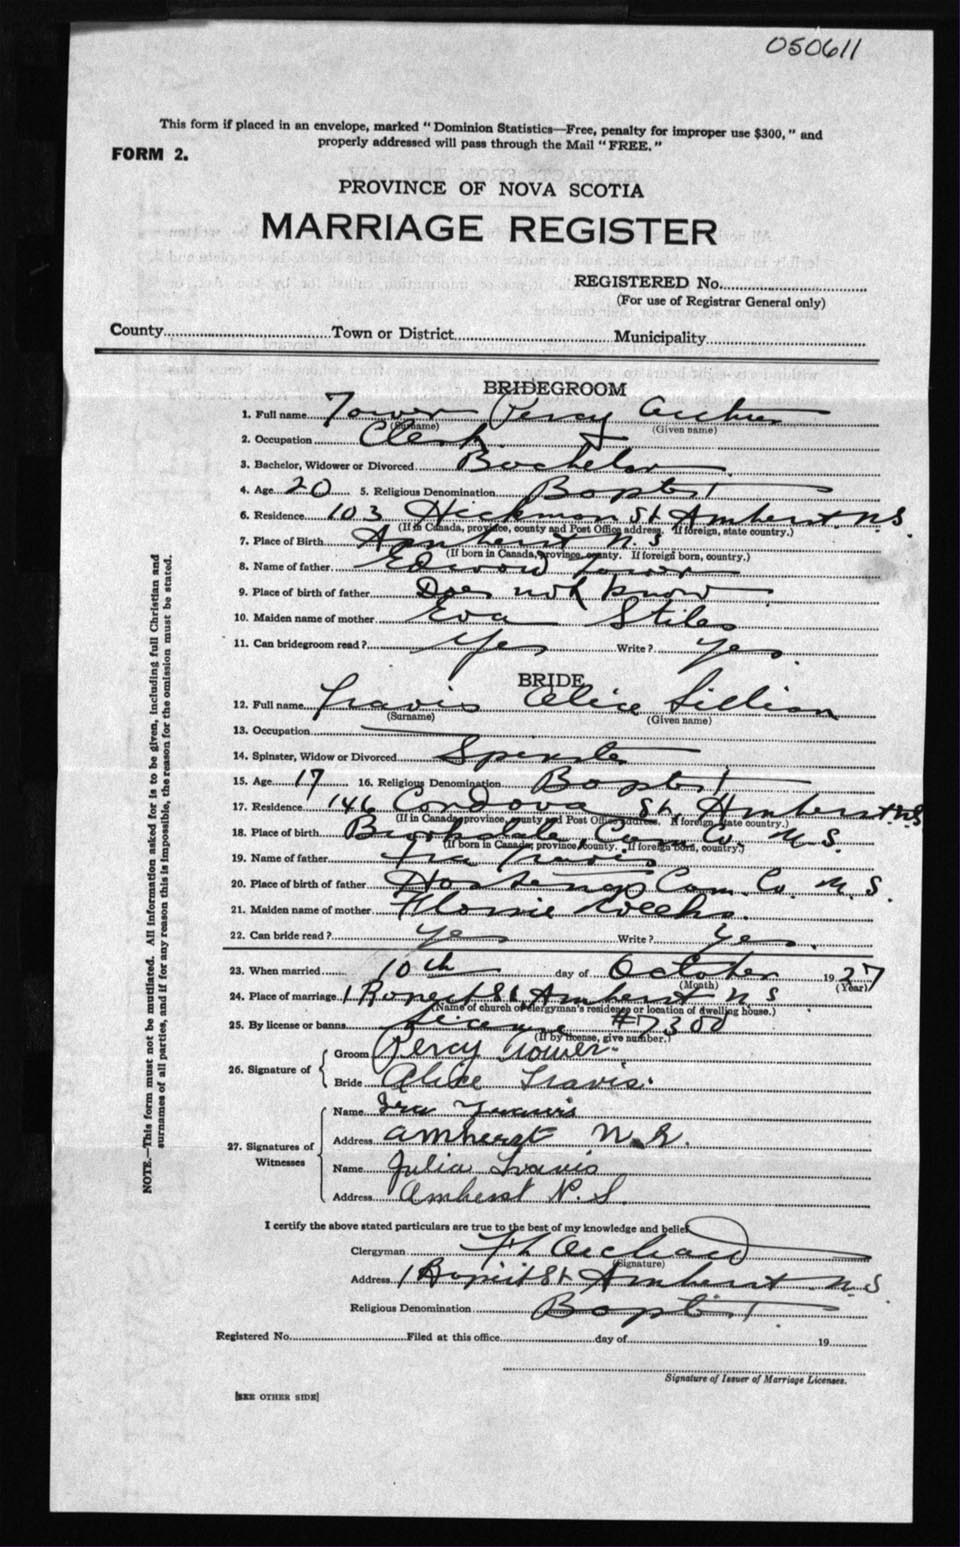 050611
This form if placed in an envelope, marked "Dominion Statistics—Free, penalty for improper use $300," and
properly addressed will pass through the Mail "FREE."
FORM 2.
PROVINCE OF NOVA SCOTIA
MARRIAGE REGISTER
REGISTERED No.
(For use of Registrar General only)
County Town or District Municipality
BRIDEGROOM
1. Full name Tower Percy Archer
(Surname) (Given name)
2. Occupation Clerk
3. Bachelor, Widower or Divorced Bachelor
4. Age 20 5. Religious Denomination Baptist
6. Residence 103 Hickman St. Amherst N.S
(If in Canada, province, county and Post Office address. If foreign, state country.)
7. Place of Birth Amherst N.S
(If born in Canada, province, county. If foreign born, country.)
8. Name of father Edward Tower
9. Place of birth of father Does not know
10. Maiden name of mother Eva Stiles
11. Can bridegroom read? Yes Write? Yes.
BRIDE
12. Full name Travis Alice Lillian
(Surname) (Given name)
13. Occupation
14. Spinster, Widow or Divorced Spinster
15. Age 17 16. Religious Denomination Baptist
17. Residence 146 Cordova St. Amherst N.S
(If in Canada, province, county and Post Office address. If foreign, state country.)
18. Place of birth Brookdale, Cum. Co. N.S.
(If born in Canada, province, county. If foreign born, country.)
19. Name of father Ira Travis
20. Place of birth of father Cum. Co. N.S.
21. Maiden name of mother Weeks.
22. Can bride read? Yes Write? Yes.
23. When married 10th day of October 1927
(Month) (Year)
24. Place of marriage 1 Rupert St. Amherst N S
(Name of church or clergyman's residence or location of dwelling house.)
25. By license or banns License #7300
(If by license, give number.)
26. Signature of Groom Percy Tower.
Bride Alice Travis.
27. Signatures of Witnesses Name Ira Travis
Address Amherst N.S.
Name Julia Travis
Address Amherst N.S.
I certify the above stated particulars are true to the best of my knowledge and belief.
Clergyman Orchard
(Signature)
Address 1 Rupert St. Amherst N.S.
Religious Denomination Baptist.
Registered No. Filed at this office day of 19
Signature of Issuer of Marriage Licenses.
[SEE OTHER SIDE]
NOTE.—This form must not be mutilated. All information asked for is to be given, including full Christian and
surnames of all parties, and if for any reason this is impossible, the reason for the omission must be stated.